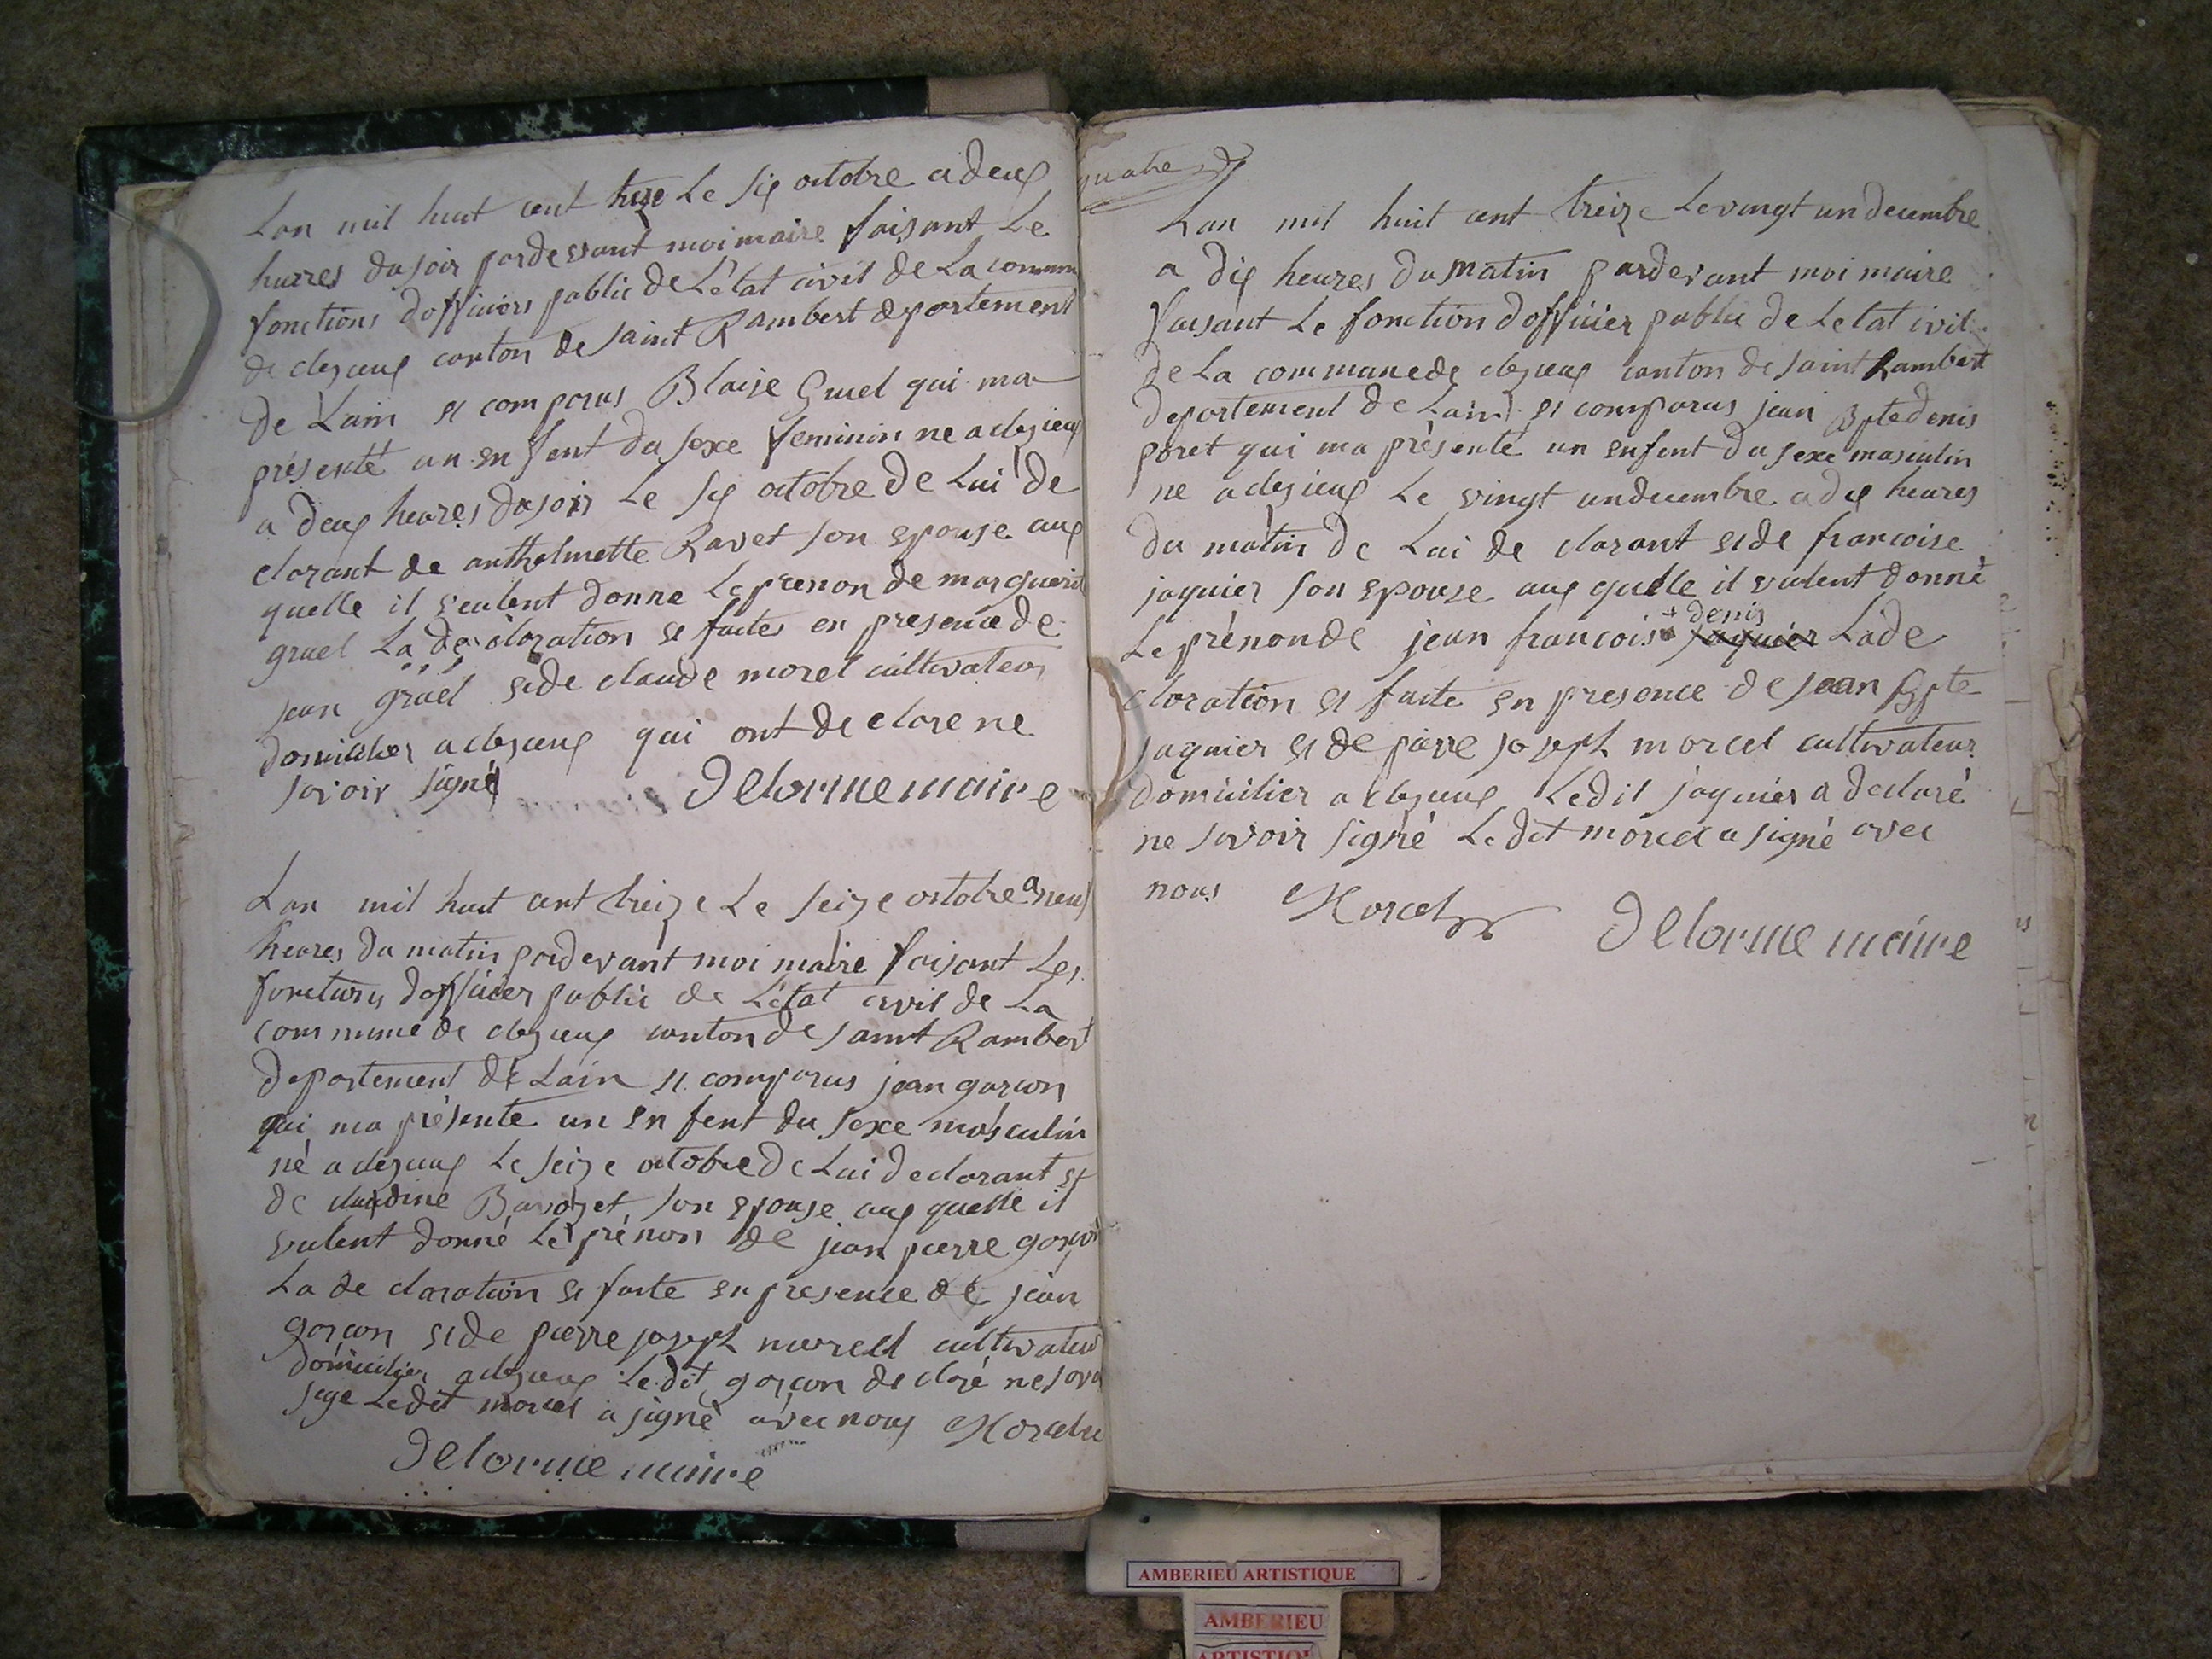 Lan mil huit cent treze Le six octobre a deux
hurres du soir pardevant moi maire faisant Le
fonctions dofficiers public de Létat civil de La commune
de clezieux canton de saint Rambert departement
de Lain se comparus Blaise Gruel qui ma
présenté un enfent du sexe feminin ne a clezieux
a deux heures du soir Le six octobre de Lui de
clarant de anthelmette Ravet son epouse aux
quelle il veulent donne Le prenon de marguerit
gruel La de claration se faites en presence de
jean gruel et de claude morel cultivateur
domicilier a clezieux qui ont de clare ne
savoir signé Delorme maire
Lan mil huit cent treize Le seize octobre a neuf
heures du matin pardevant moi maire faisant Les
fonctions dofficier public de Létat civil de La
commune de clezieux canton de saint Rambert
departement de Lain se comparus jean garcon
qui ma présente un enfent du sexe masculin
né a clezieux Le seize octobre de Lui declarant et
de claudine Bavozet son epouse aux quelle il
veulent donné Le prénon de jean pierre garcon
La de claration se faite en presence de jean
garcon et de pierre joseph morcel cultivateur
domicilier a clezieux Le dit garcon de claré ne sava
sige Le dit morcel a signé avec nous Morcel
Delorme maire
quatre
Lan mil huit cent treize Le vingt un decembre
a dix heures du matin pardevant moi maire
faisant Le fonction dofficier public de Letat ivil
de La commune de clezieux canton de saint Rambert
departement de Lain se comparus jean Bpte denis
poret qui ma présenté un enfent du sexe masculin
ne a clezieux Le vingt un decembre a dix heures
du matin de Lui de clarant et de francoise
jaquier son epouse aux quelle il veulent donné
+ denis
Le prénon de jean francois + jaquier La de
claration se faite en presence de jean Bpte
jaquier et de pierre joseph morcel cultivateur
domicilier a clezieux Le dit jaquier a declaré
ne savoir signé Le dit morcel a signé avec
nous Morcel Delorme maire
AMBERIEU ARTISTIQUE
AMBERIEU
ARTISTIQUE